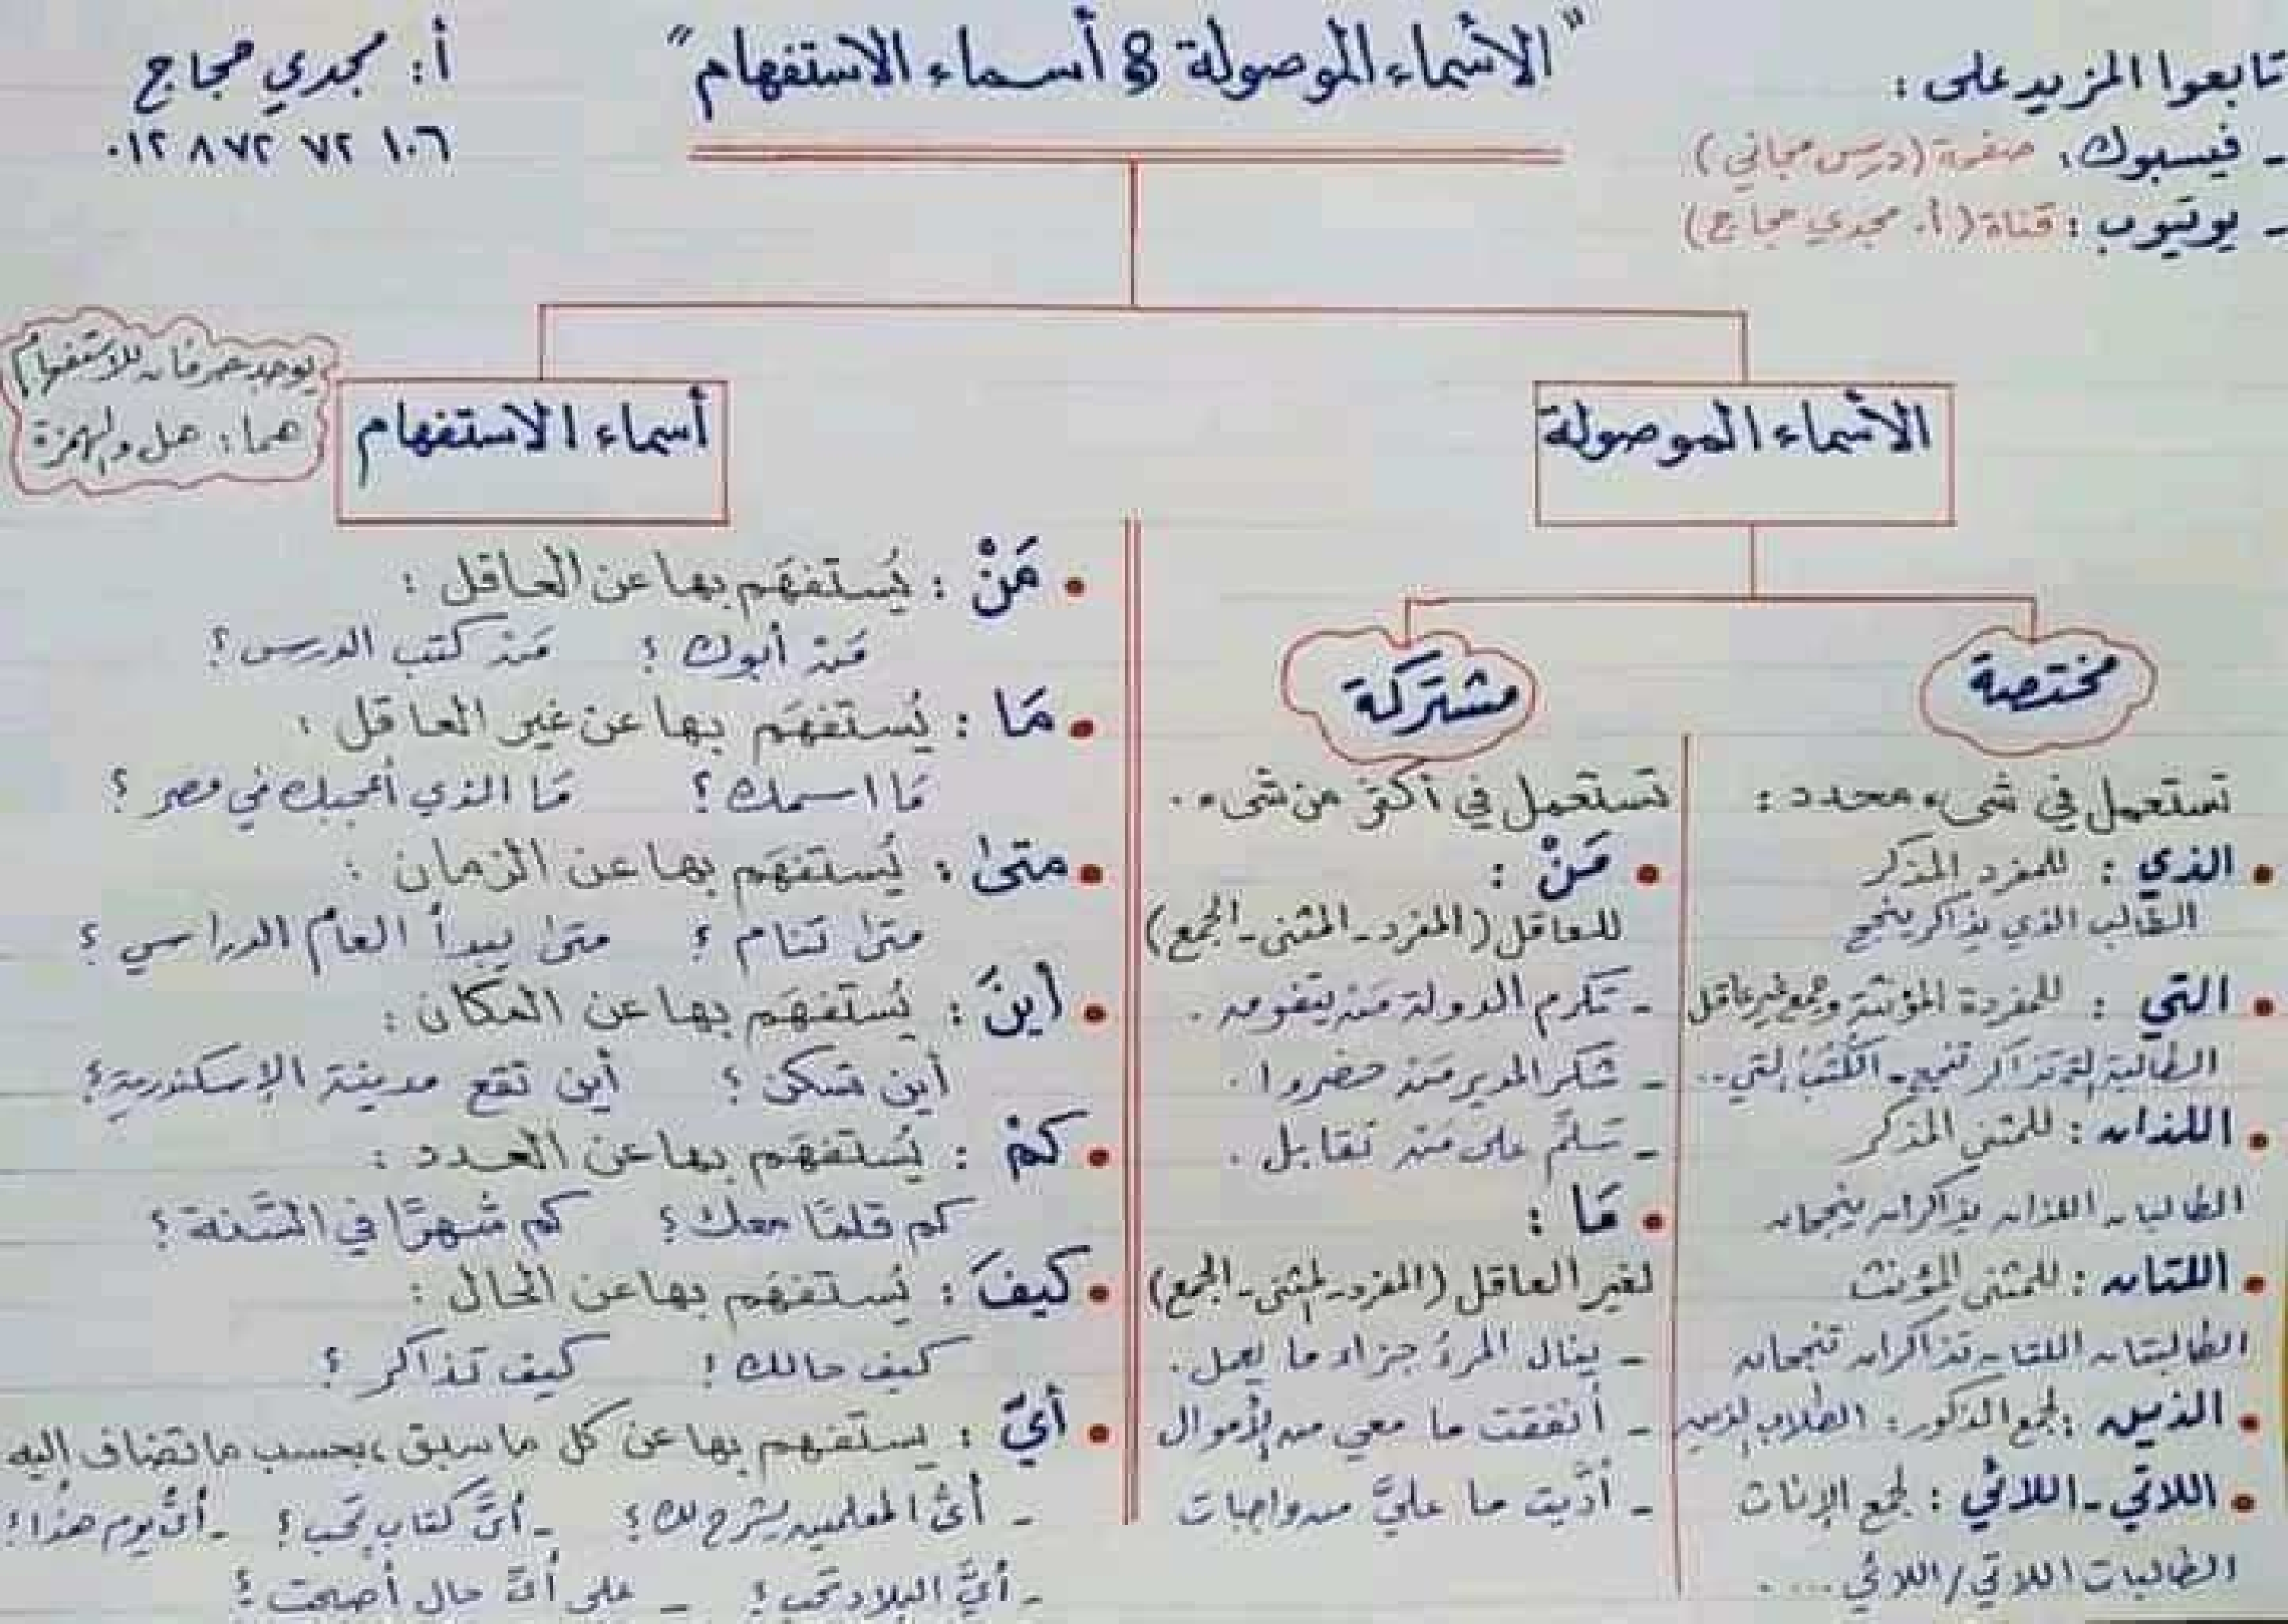 "الأسماء الموصولة & أسماء الاستفهام"
تابعوا المزيد على :
- فيسبوك: صفحة (درس مجاني)
- يوتيوب : قناة (أ. مجدي حجاج)
أ: مجدي حجاج
٠١٢٨٧٢٧٢١٠٦
الأسماء الموصولة
مختصة
تستعمل في شيء محدد :
• الذي : للمفرد المذكر
الطالب الذي يذاكر ينجح
• التي : للمفردة المؤنثة وجمع غير عاقل
الطالبة التي تذاكر تنجح - الكُتُبُ التي..
• اللذان : للمثنى المذكر
الطالبان اللذان يذاكران ينجحان
• اللتان : للمثنى المؤنث
الطالبتان اللتان تذاكران تنجحان
• الذين : لجمع الذكور : الطلاب الذين
• اللاتي - اللائي : لجمع الإناث
الطالبات اللاتي / اللائي ....
مشتركة
تستعمل في أكثر من شيء .
• مَنْ :
للعاقل (المفرد - المثنى - الجمع)
- تكرم الدولة مَن يتفوق .
- شكر المدير مَن حضروا .
- سَلِّم على مَن تقابل .
• مَا :
لغير العاقل (المفرد - المثنى - الجمع)
- ينال المرءُ جزاء ما يعمل .
- أنفقت ما معي من الأموال
- أدَّيت ما عليَّ من واجبات
أسماء الاستفهام
يوجد حرفان للاستفهام
هما : هل والهمزة
• مَنْ : يُستفهَم بها عن العاقل :
مَن أبوك ؟ مَن كتب الدرس ؟
• مَا : يُستفهَم بها عن غير العاقل :
مَا اسمك ؟ مَا الذي أعجبك في مصر ؟
• متىٰ : يُستفهَم بها عن الزمان :
متىٰ تنام ؟ متىٰ يبدأ العام الدراسي ؟
• أينَ : يُستفهَم بها عن المكان :
أين تسكن ؟ أين تقع مدينة الإسكندرية ؟
• كمْ : يُستفهَم بها عن العدد :
كم قلمًا معك ؟ كم شهرًا في السَّنة ؟
• كيفَ : يُستفهَم بها عن الحال :
كيف حالك ؟ كيف تذاكر ؟
• أيّ : يستفهم بها عن كل ما سبق ، بحسب ما تضاف إليه
- أيُّ المعلمين يشرح لك ؟ - أيَّ كتاب تحب ؟ - أيُّ يوم هذا ؟
- أيَّ البلاد تحب ؟ - على أيِّ حال أصبحت ؟